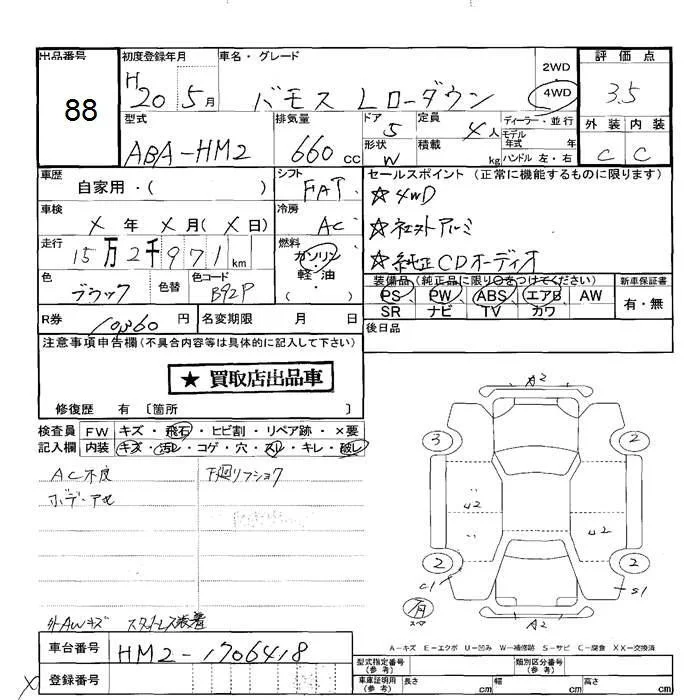 出品番号
88
初度登録年月
H20 5月
車名・グレード
バモス Lローダウン
2WD
4WD
評価点
3.5
外装 内装
C C
型式
ABA-HM2
排気量
660 cc
ドア
5
形状
W
定員
4人
積載
kg
ディーラー・並行
モデル年式 年式
ハンドル 左・右
車歴
自家用・( )
シフト
FAT
セールスポイント (正常に機能するものに限ります)
☆4WD
☆社外アルミ
☆純正CDオーディオ
車検
X 年 X 月( X 日)
冷房
AC
走行
15万2千971km
燃料
ガソリン・軽油・( )
色
ブラック
色替
色コード
B92P
装備品 (純正品に限り○をつけてください)
PS PW ABS エアB AW
SR ナビ TV カワ
新車保証書
有・無
R券
10360円
名変期限 月 日
後日品
注意事項申告欄(不具合内容等は具体的に記入して下さい)
★ 買取店出品車
修復歴 有 〔箇所 〕
検査員記入欄
FW キズ・飛石・ヒビ割・リペア跡・×要
内装 キズ・汚レ・コゲ・穴・スレ・キレ・破レ
AC不良
下廻リフショク
外AWキズ
スタッドレス装着
A2
3
2
U2
U2
2
2
C1
S1
有
スペア
A2
A-キズ E-エクボ U-凹み W-補修跡 S-サビ C-腐食 XX-交換済
車台番号
HM2-1706418
登録番号
X
型式指定番号(参考)
類別区分番号(参考)
車庫証明用(参考)
長さ cm
幅 cm
高さ cm